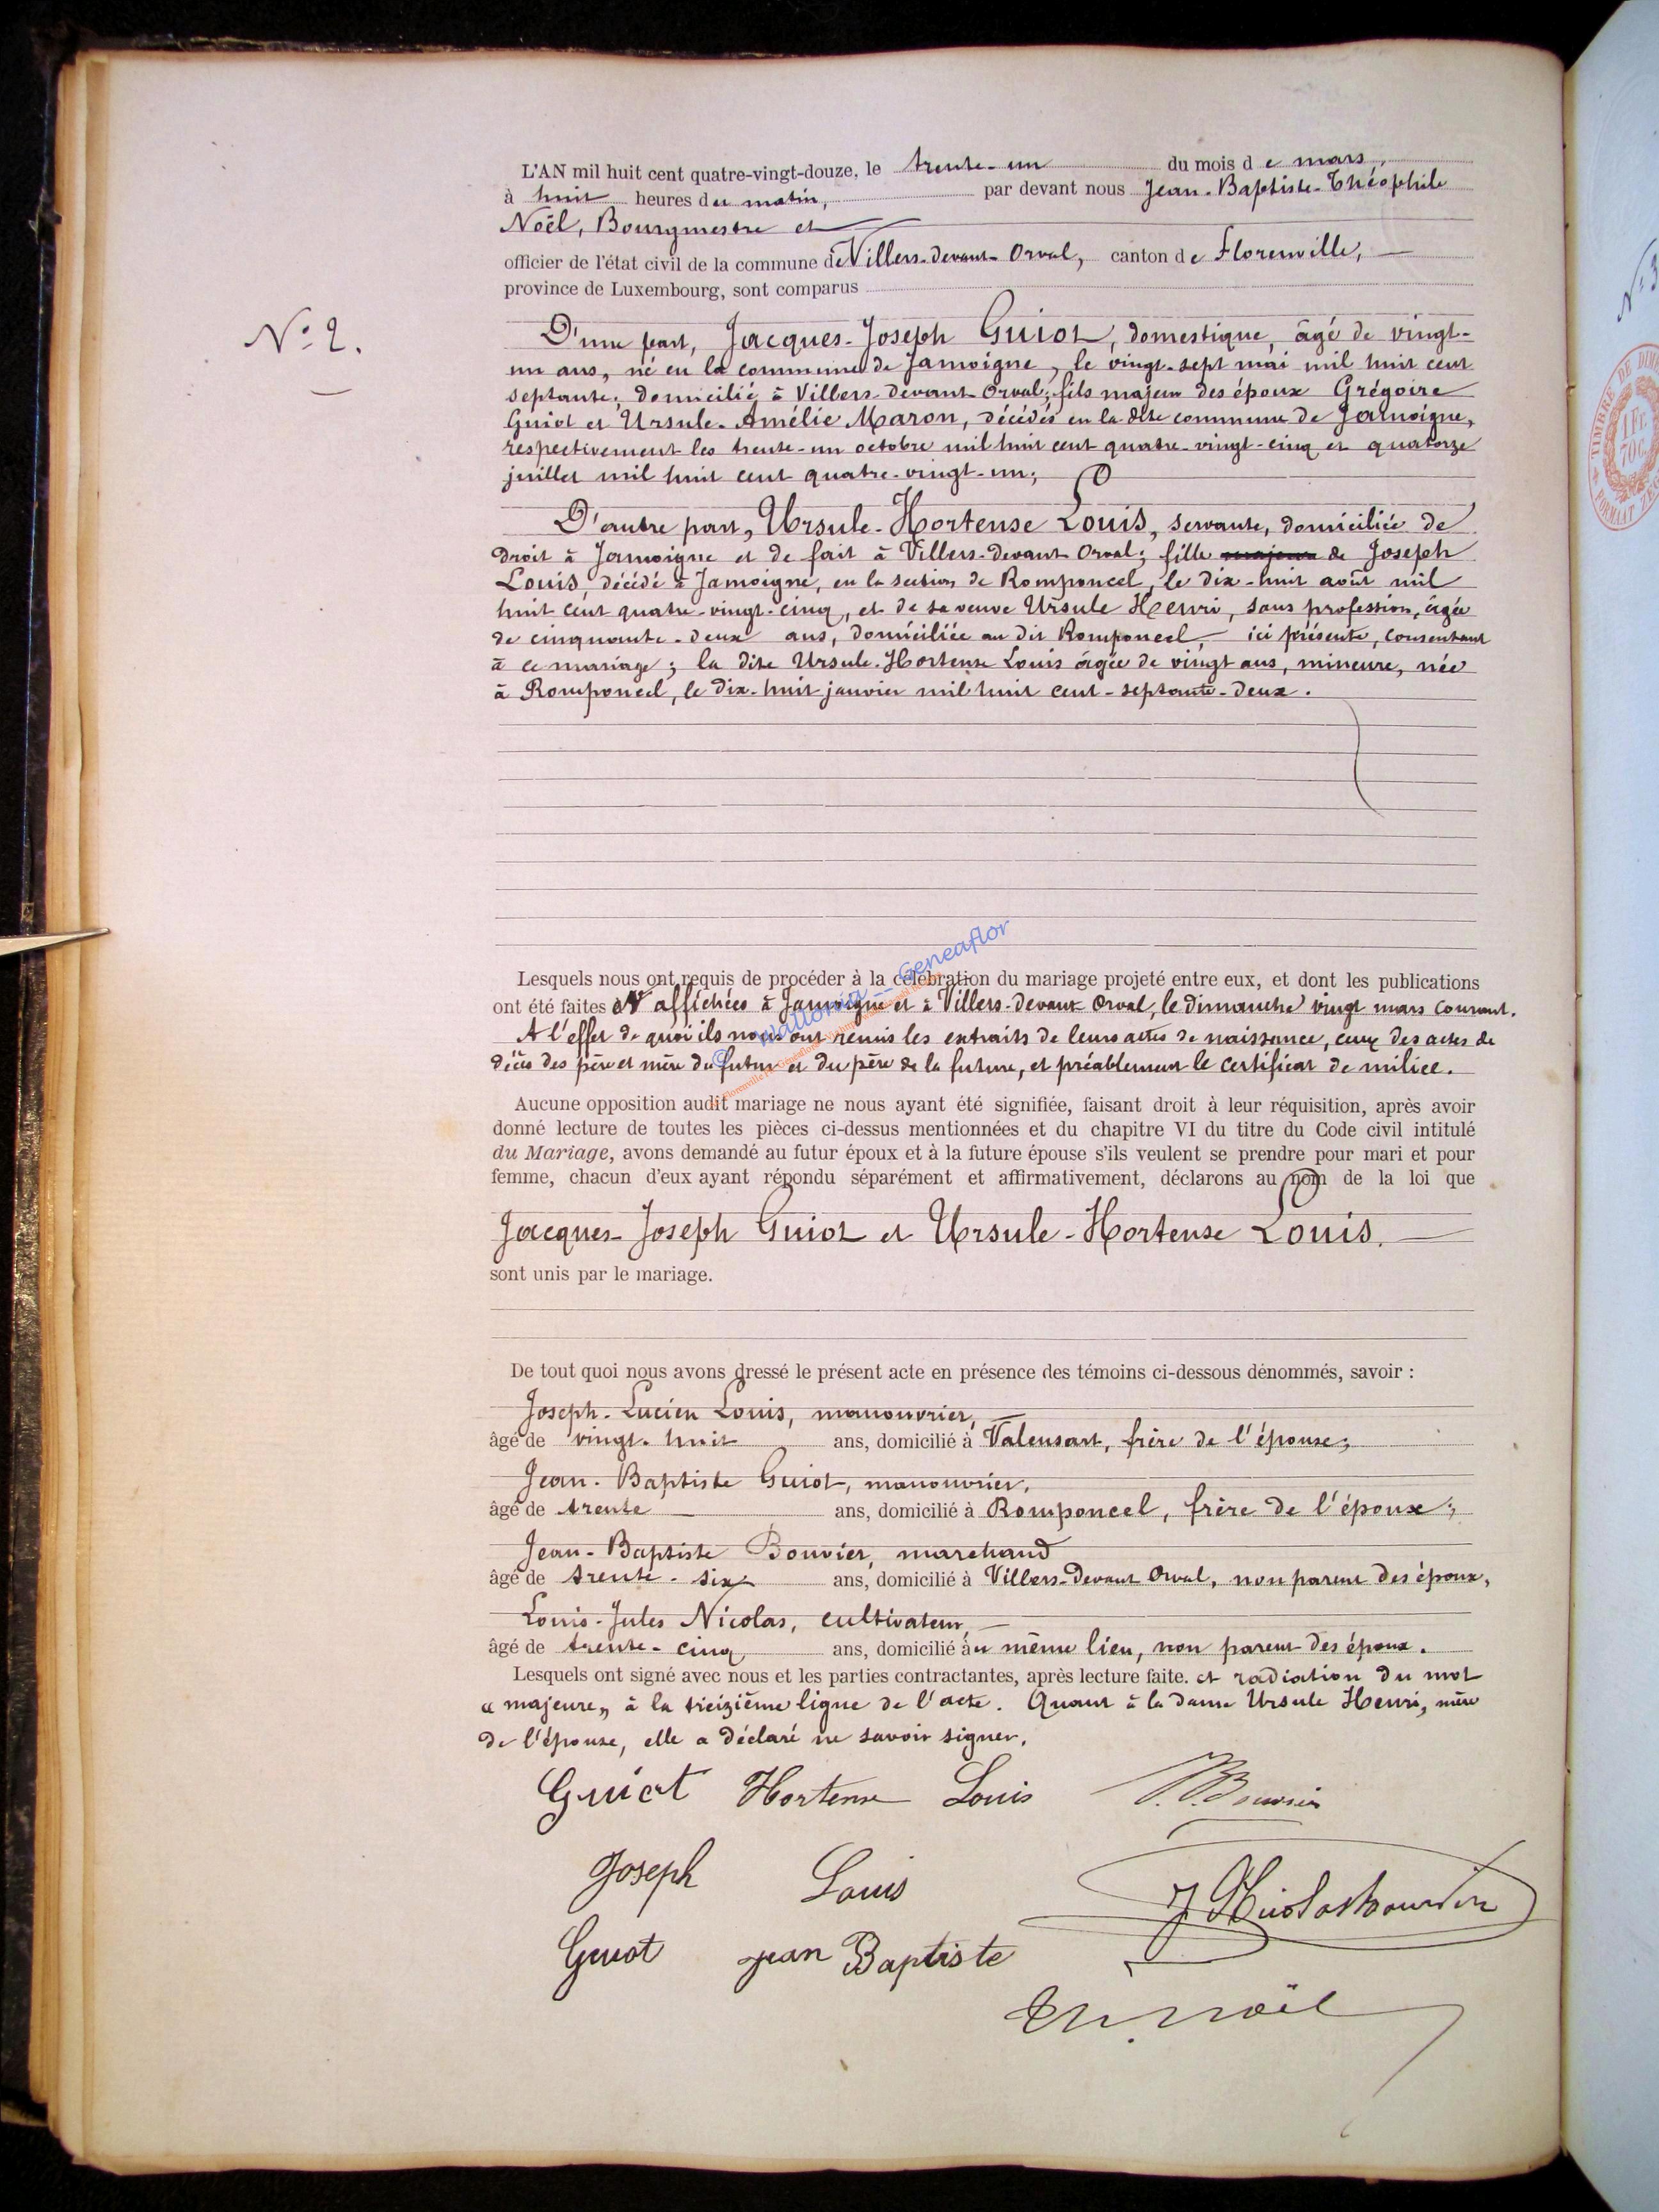 L'AN mil huit cent quatre-vingt-douze, le trente-un du mois de mars,
à huit heures du matin, par devant nous Jean-Baptiste-Théophile
Noël, Bourgmestre et
officier de l'état civil de la commune de Villers-devant-Orval, canton de Florenville,
province de Luxembourg, sont comparus
N° 2.
D'une part, Jacques-Joseph Guiot, domestique, âgé de vingt-
un ans, né en la commune de Jamoigne, le vingt-sept mai mil huit cent
septante; domicilié à Villers-devant-Orval; fils majeur des époux Grégoire
Guiot et Ursule-Amélie Maron, décédés en la dite commune de Jamoigne,
respectivement les trente-un octobre mil huit cent quatre-vingt-cinq et quatorze
juillet mil huit cent quatre-vingt-un;
D'autre part, Ursule-Hortense Louis, servante, domiciliée de
droit à Jamoigne et de fait à Villers-devant-Orval; fille majeure de Joseph
Louis, décédé à Jamoigne, en la section de Romponcel, le dix-huit août mil
huit cent quatre-vingt-cinq, et de sa veuve Ursule Henri, sans profession, âgée
de cinquante-deux ans, domiciliée au dit Romponcel, ici présente, consentant
à ce mariage; la dite Ursule-Hortense Louis âgée de vingt ans, mineure, née
à Romponcel, le dix-huit janvier mil huit cent-septante-deux.
Lesquels nous ont requis de procéder à la célébration du mariage projeté entre eux, et dont les publications
ont été faites et affichées à Jamoigne et à Villers-devant Orval, le dimanche vingt mars courant.
A l'effet de quoi ils nous ont remis les extraits de leurs actes de naissance, ceux des actes de
décès des père et mère du futur et du père de la future, et préablement le certificat de milice.
Aucune opposition audit mariage ne nous ayant été signifiée, faisant droit à leur réquisition, après avoir
donné lecture de toutes les pièces ci-dessus mentionnées et du chapitre VI du titre du Code civil intitulé
du Mariage, avons demandé au futur époux et à la future épouse s'ils veulent se prendre pour mari et pour
femme, chacun d'eux ayant répondu séparément et affirmativement, déclarons au nom de la loi que
Jacques-Joseph Guiot et Ursule-Hortense Louis.
sont unis par le mariage.
De tout quoi nous avons dressé le présent acte en présence des témoins ci-dessous dénommés, savoir :
Joseph-Lucien Louis, manouvrier,
âgé de vingt-huit ans, domicilié à Valensart, frère de l'épouse;
Jean-Baptiste Guiot, manouvrier,
âgé de trente ans, domicilié à Romponcel, frère de l'époux;
Jean-Baptiste Bouvier, marchand
âgé de trente-six ans, domicilié à Villers-devant Orval, non parent des époux,
Louis-Jules Nicolas, cultivateur,
âgé de trente-cinq ans, domicilié au même lieu, non parent des époux.
Lesquels ont signé avec nous et les parties contractantes, après lecture faite. et radiation du mot
« majeure » à la treizième ligne de l'acte. Quant à la dame Ursule Henri, mère
de l'épouse, elle a déclaré ne savoir signer.
Guiot Hortense Louis J.B. Bouvier
Joseph Louis
Guiot jean Baptiste
Th. Noël
Wallonia -- Geneaflor
TIMBRE DE DIM
1 Fr.
70 C.
N° 3